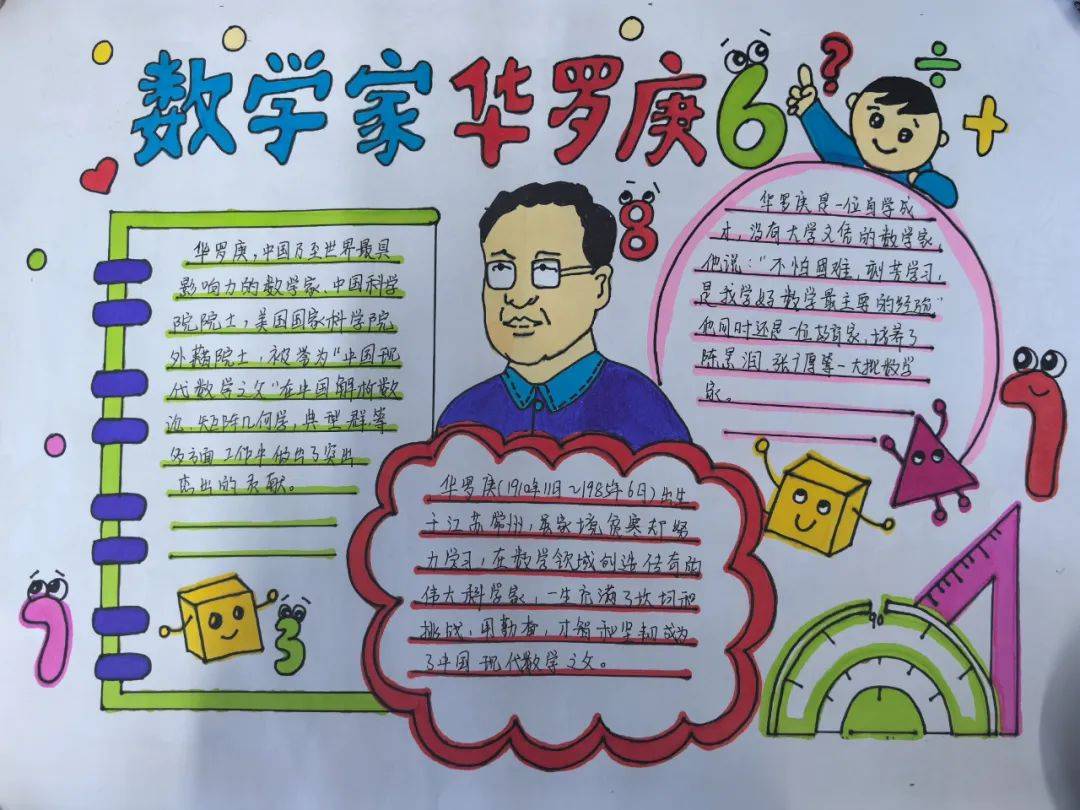 数学家华罗庚
6
?
÷
+
8
华罗庚，中国乃至世界最具
影响力的数学家、中国科学
院院士，美国国家科学院
外籍院士，被誉为“中国现
代数学之父”在中国解析数
论、矩阵几何学，典型群等
多方面工作中做出了突出
杰出的贡献。
华罗庚是一位自学成
才，没有大学文凭的数学家，
他说：“不怕困难，刻苦学习，
是我学好数学最主要的经验”
他同时还是一位教育家，培养了
陈景润、张广厚等一大批数学
家。
华罗庚(1910年11日~1985年6日)出生
于江苏常州，虽家境贫寒却努
力学习，在数学领域创造传奇的
伟大科学家，一生充满了坎坷和
挑战，用勤奋，才智和坚韧成为
了中国现代数学之父。
1
1
3
90